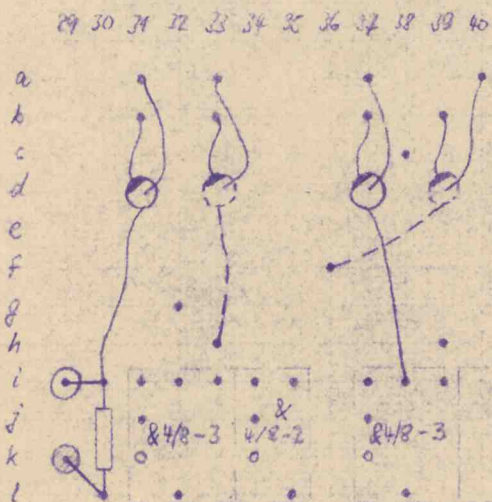 29 30 31 32 33 34 35 36 37 38 39 40
a
b
c
d
e
f
g
h
i
&
j &4/8-3 4/8-2 &4/8-3
k
l